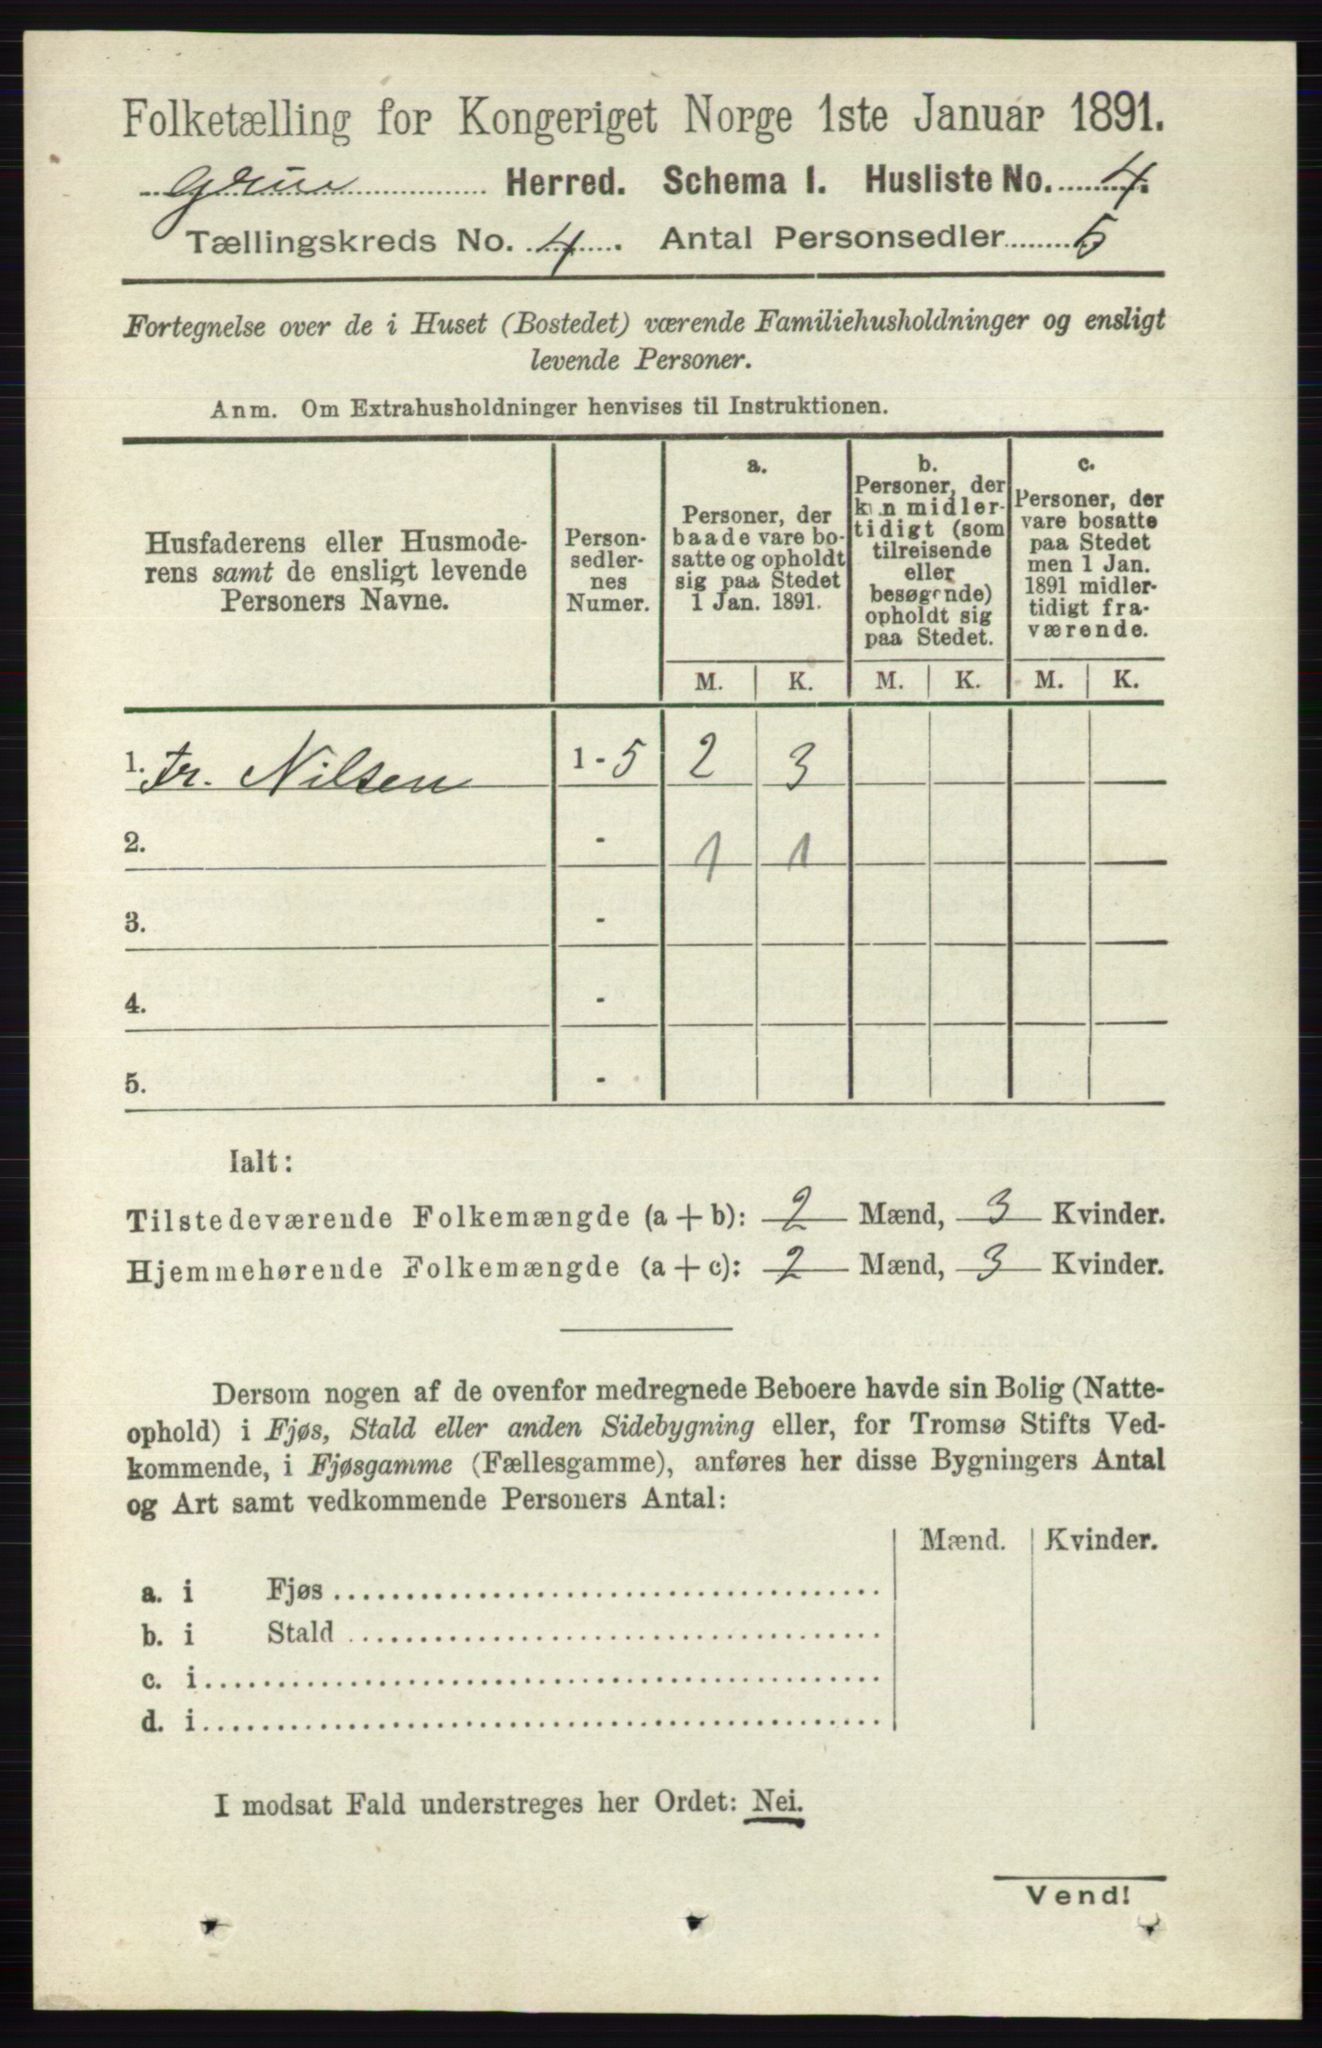 Folketælling for Kongeriget Norge 1ste Januar 1891.
Grue Herred. Schema I. Husliste No. 4.
Tællingskreds No. 4. Antal Personsedler 5
Fortegnelse over de i Huset (Bostedet) værende Familiehusholdninger og ensligt
levende Personer.
Anm. Om Extrahusholdninger henvises til Instruktionen.
Husfaderens eller Husmode-
rens samt de ensligt levende
Personers Navne.
Person-
sedler-
nes
Numer.
a.
Personer, der
baade vare bo-
satte og opholdt
sig paa Stedet
1 Jan. 1891.
b.
Personer, der
kun midler-
tidigt (som
tilreisende
eller
besøgende)
opholdt sig
paa Stedet.
c.
Personer, der
vare bosatte
paa Stedet
men 1 Jan.
1891 midler-
tidigt fra-
værende.
M. K. M. K. M. K.
1. Fr. Nilsen 1 - 5 2 3
2. - 1 1
3. -
4. -
5. -
Ialt:
Tilstedeværende Folkemængde (a + b): 2 Mænd, 3 Kvinder.
Hjemmehørende Folkemængde (a + c): 2 Mænd, 3 Kvinder.
Dersom nogen af de ovenfor medregnede Beboere havde sin Bolig (Natte-
ophold) i Fjøs, Stald eller anden Sidebygning eller, for Tromsø Stifts Ved-
kommende, i Fjøsgamme (Fællesgamme), anføres her disse Bygningers Antal
og Art samt vedkommende Personers Antal:
Mænd. Kvinder.
a. i Fjøs
b. i Stald
c. i
d. i
I modsat Fald understreges her Ordet: Nei.
Vend!